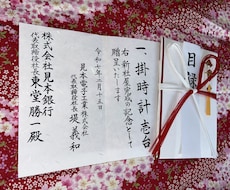 目録
一、掛時計 壱台
右 新社屋完成の記念として
贈呈いたします
令和七年二月十五日
見本電子工業株式会社
代表取締役社長 堤義和
株式会社見本銀行
代表取締役頭取 東堂勝一殿